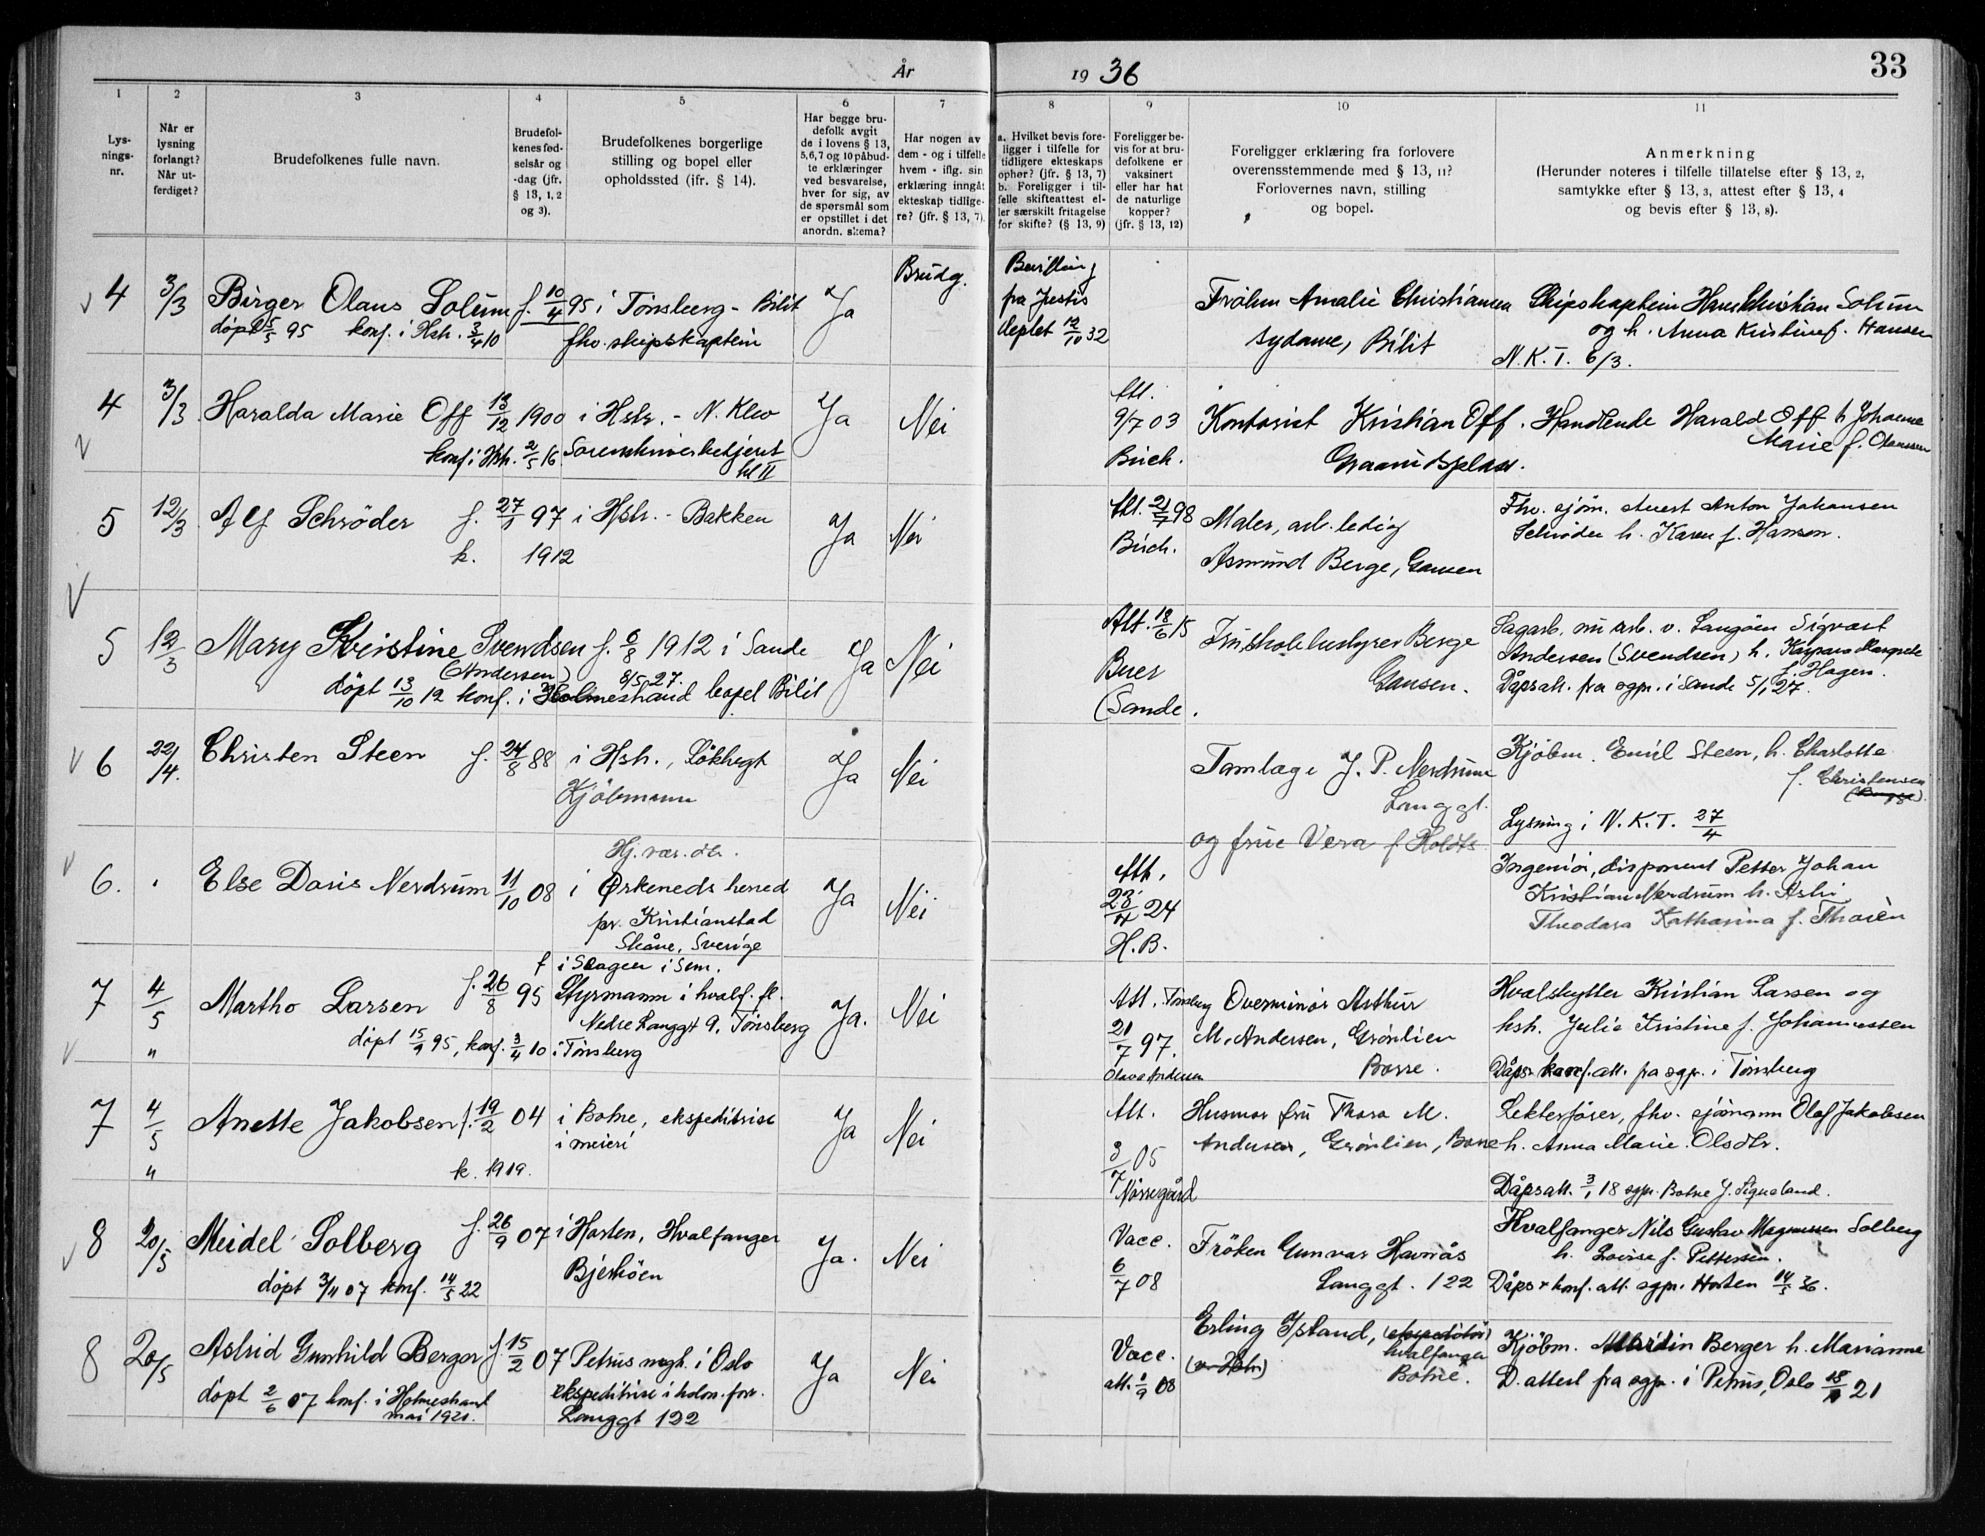 År 1936
33
1 2 3 4 5 6 7 8 9 10 11
Lys-
nings-
nr.
Når er
lysning
forlangt?
Når ut-
ferdiget?
Brudefolkenes fulle navn.
Brudefol-
kenes fød-
selsår og
-dag (jfr.
§ 13, 1, 2
og 3).
Brudefolkenes borgerlige
stilling og bopel eller
opholdssted (ifr. § 14).
Har begge bru-
defolk avgit
de i lovens § 13,
5,6,7 og 10 påbud-
te erklæringer
ved besvarelse,
hver for sig, av
de spørsmål som
er opstillet i det
anordn. skema?
Har nogen av
dem - og i tilfelle
hvem - iflg. sin
erklæring inngåt
ekteskap tidlige-
re? (jfr. § 13, 7).
a. Hvilket bevis fore-
ligger i tilfelle for
tidligere ekteskaps
ophør? (jfr. § 13, 7)
b. Foreligger i til-
felle skifteattest el-
ler særskilt fritagelse
for skifte? (§ 13, 9)
Foreligger be-
vis for at bru-
defolkene er
vaksinert
eller har hat
de naturlige
kopper?
(jfr. § 13, 12)
Foreligger erklæring fra forlovere
overensstemmende med § 13, 11?
Forlovernes navn, stilling
og bopel.
Anmerkning
(Herunder noteres i tilfelle tillatelse efter § 13, 2,
samtykke efter § 13, 3, attest efter § 13, 4
og bevis efter § 13, 8).
4 3/3 Birger Olaus Solum f. 10/4 95 i Tønsberg - Bilit Ja Brudg.
døpt 5/5 95 konf. i Hstr. 3/4 10 fhv. skipskaptein
Bevilling
fra Justis
deptet 12/10 32
Frøken Amalie Christiansen
sydame, Bilit
Skipskaptein Hans Christian Solum
og h. Anna Kristine f. Hansen
N.K.T. 6/3.
4 3/3 Haralda Marie Off 13/12 1900 i Hstr. - N. Klev Ja Nei
konf. i Hstr. 2/5 16 Sorenskriverbetjent
kl II
Att.
9/7 03
Buch.
Kontorist Kristian Off.
Graamdsplass.
Handlende Harald Off h Johanne
Marie f. Olaussen
5 12/3 Alf Schrøder f. 27/1 97 i Hstr. - Bakken Ja Nei
k. 1912
Att. 21/7 98
Buch.
Maler, arb. ledig
Asmund Berge, Gausen
Fhv. sjøm. Anest Anton Johansen
Schrøder h. Karen f. Hansen.
5 12/3 Mary Kristine Svendsen f. 6/8 1912 i Sande Ja Nei
(Andersen)
døpt 13/10 12 konf. i Holmestrand 8/5 27. bopel Bilit
Att. 18/6 15
Buer
(Sande.
Fru skolebestyrer Berge
Gausen.
Sagarb. nu arb. v. Langøen Sigvart
Andersen (Svendsen) h. Kaspara Margrete
f. Hagen.
Dåpsatt. fra sogpr. i Sande 5/1 27.
6 22/4. Christen Steen f. 24/8 88 i Hstr., Løkkegt Ja Nei
Kjøbmann
Tannlæge J. P. Nerdrum
Langgt.
og frue Vera f Holdts
Kjøbm. Emil Steen, h. Charlotte
f. Christensen
Lysning i N.K.T. 27/4
6. Else Doris Nerdrum 11/10 08 Hj. vær. dtr. Ja Nei
i Ørkeneds herred
pr. Kristianstad
Skåne, Sverige
Att.
23/4 24
H.B.
Ingeniør, disponent Petter Johan
Kristian Nerdrum h. Astri
Theodora Katharina f. Thorèn
7 4/5 Martho Larsen f. 26/8 95 f i Slagen i Sem. Ja. Nei
Styrmann i hvalf. fl.
Nedre Langgt 9, Tønsberg
" døpt 15/9 95, konf. 3/4 10 i Tønsberg
Att. Tønsberg
21/7 97.
Olava Andersen
Overminør Arthur
M. Andersen, Grønlien
Borre.
Hvalskytter Kristian Larsen og
hsh. Julie Kristine f. Johannessen
Dåps- konf. att. fra sogpr. i Tønsberg
7 4/5 Anette Jakobsen f. 19/2 04 i Botne, ekspeditrise Ja Nei
i meieri
" k. 1919.
Att.
3/7 05
Nørregård
Husmor fru Thora M.
Andersen, Grønlien, Borre
Lekterfører, fhv. sjømann Olaf Jakobsen
h. Anna Marie Olsdtr.
Dåpsatt. 3/1 18 sogpr. Botne
8 20/5 Meidel Solberg f. 26/9 07 i Horten, Hvalfanger Ja. Nei
Bjerkøen
døpt 3/11 07 konf. 14/5 22
Vacc.
6/7 08
Frøken Gunvar Havnås
Langgt. 122
Hvalfanger Nils Gustav Magnussen Solberg
h. Lovise f. Pettersen.
Dåps- & konf. att. sogpr. Horten 14/5 36.
8 20/5 Astrid Gunhild Berger f. 15/2 07 Petrus mgh. i Oslo Ja Nei
døpt 2/6 07 konf. i Holmestrand
mai 1921.
ekspeditrise i kolon. forr.
Langgt 122
Vacc.
att. 1/9 08
Erling Istand, (ekspeditør)
hvalfanger
Botne.
Kjøbm. Berger h. Marianne
D. attest fra sogpr. i Petrus, Oslo 18/4 21